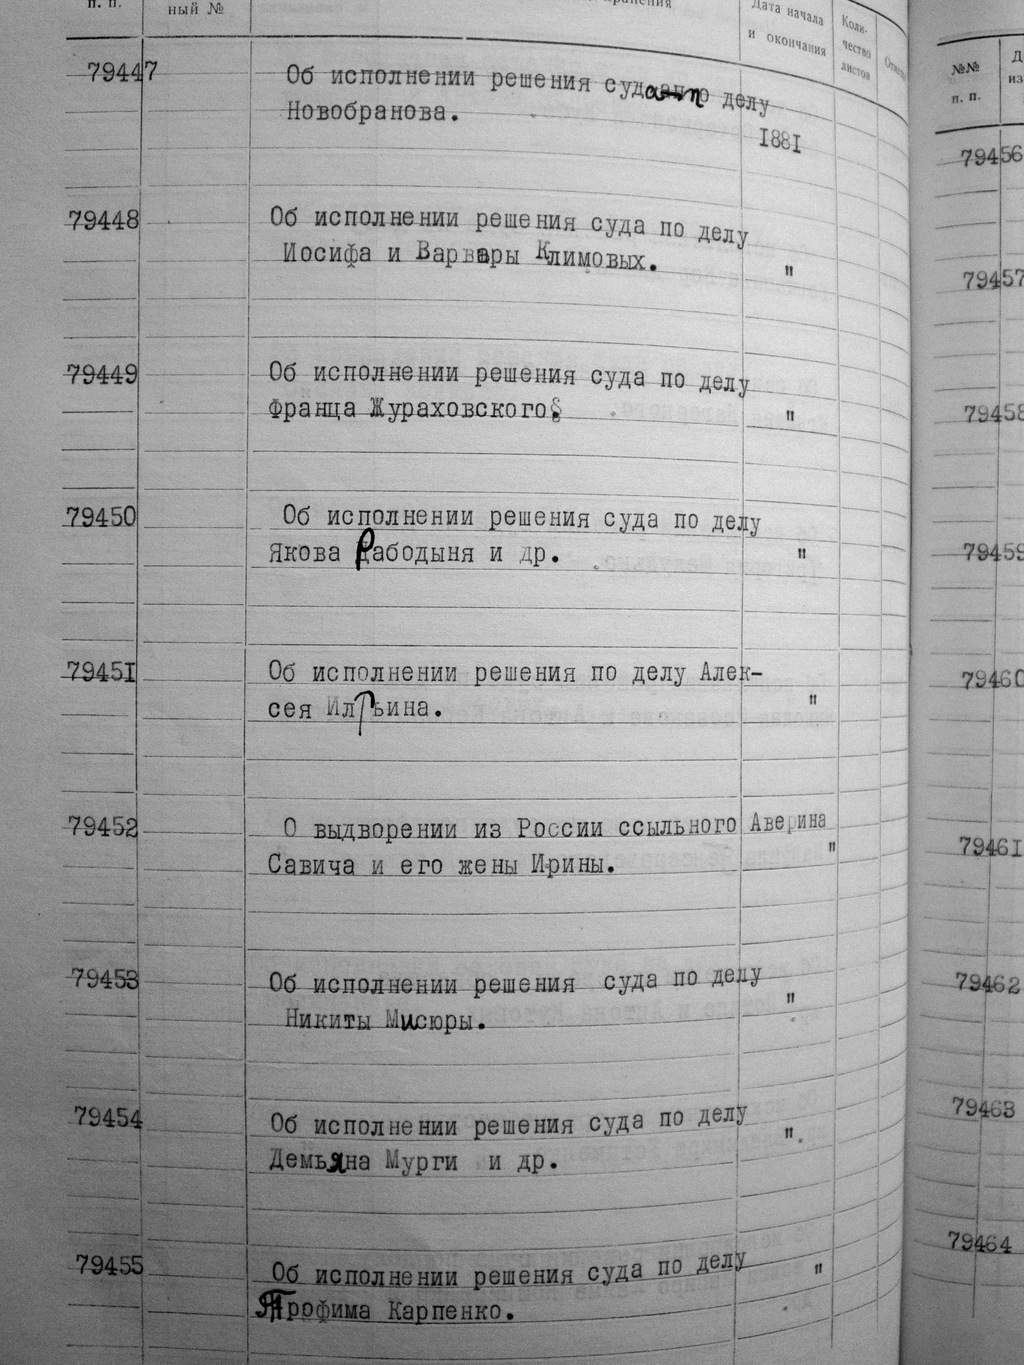 п. п.
ный №
Дата начала
и окончания
Коли-
чество
листов
79447
Об исполнении решения суда по делу
Новобранова.
1881
79448
Об исполнении решения суда по делу
Иосифа и Варвары Климовых.
"
79449
Об исполнении решения суда по делу
Франца Жураховского.
"
79450
Об исполнении решения суда по делу
Якова Рабодыня и др.
"
79451
Об исполнении решения по делу Алек-
сея Ильина.
"
79452
О выдворении из России ссыльного Аверина
Савича и его жены Ирины.
"
79453
Об исполнении решения суда по делу
Никиты Мисюры.
"
79454
Об исполнении решения суда по делу
Демьяна Мурги и др.
"
79455
Об исполнении решения суда по делу
Трофима Карпенко.
"
№№
п. п.
79456
79457
79458
79459
79460
79461
79462
79463
79464